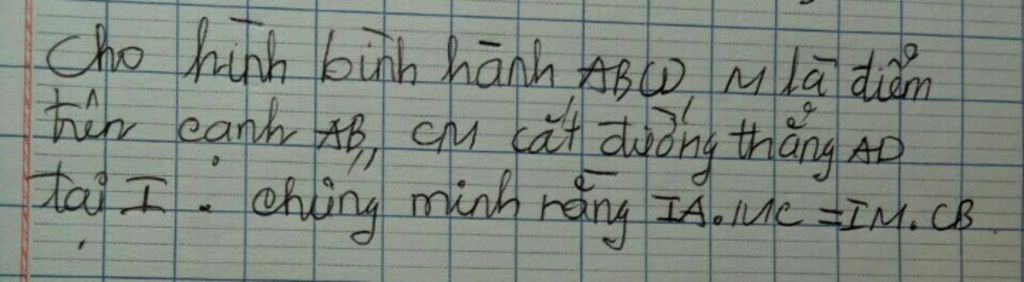 Cho hình bình hành ABCD, M là điểm
trên cạnh AB, CM cắt đường thẳng AD
tại I. Chứng minh rằng IA.MC = IM.CB